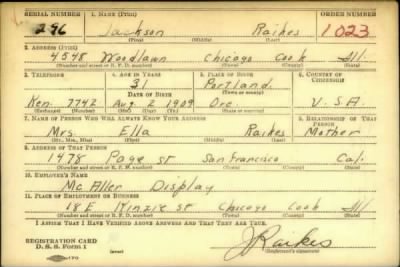 SERIAL NUMBER 1. NAME (Print) ORDER NUMBER
296 Jackson Raikes 1023
(First) (Middle) (Last)
2. ADDRESS (Print)
4548 Woodlawn Chicago Cook Ill.
(Number and street or R. F. D. number) (Town) (County) (State)
3. TELEPHONE 4. AGE IN YEARS 5. PLACE OF BIRTH 6. COUNTRY OF CITIZENSHIP
31 Portland
DATE OF BIRTH (Town or county)
Ken. 7742 Aug 2 1909 Ore. U.S.A.
(Exchange) (Number) (Mo.) (Day) (Yr.) (State or country)
7. NAME OF PERSON WHO WILL ALWAYS KNOW YOUR ADDRESS 8. RELATIONSHIP OF THAT PERSON
Mrs. Ella Raikes Mother
(Mr., Mrs., Miss) (First) (Middle) (Last)
9. ADDRESS OF THAT PERSON
1478 Page st San Francisco Cal.
(Number and street or R. F. D. number) (Town) (County) (State)
10. EMPLOYER'S NAME
Mc Aller Display
11. PLACE OF EMPLOYMENT OR BUSINESS
18 E Kinzie st Chicago Cook Ill
(Number and street or R. F. D. number) (Town) (County) (State)
I AFFIRM THAT I HAVE VERIFIED ABOVE ANSWERS AND THAT THEY ARE TRUE.
REGISTRATION CARD
D. S. S. Form 1 J Raikes
(Registrant's signature)